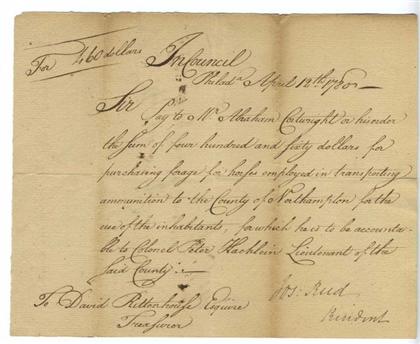 For 460 dollars
In Council
Philada April 12th 1780
Sir
Pay to Mr Abraham Cortwright or his order
the sum of four hundred and sixty dollars for
purchasing forage for horses employed in transporting
ammunition to the County of Northampton for the
use of the inhabitants, for which he is to be accounta-
ble to Colonel Peter Hachlein Lieutenant of the
said County.
Jos: Reed
President
To David Rittenhouse Esquire
Treasurer